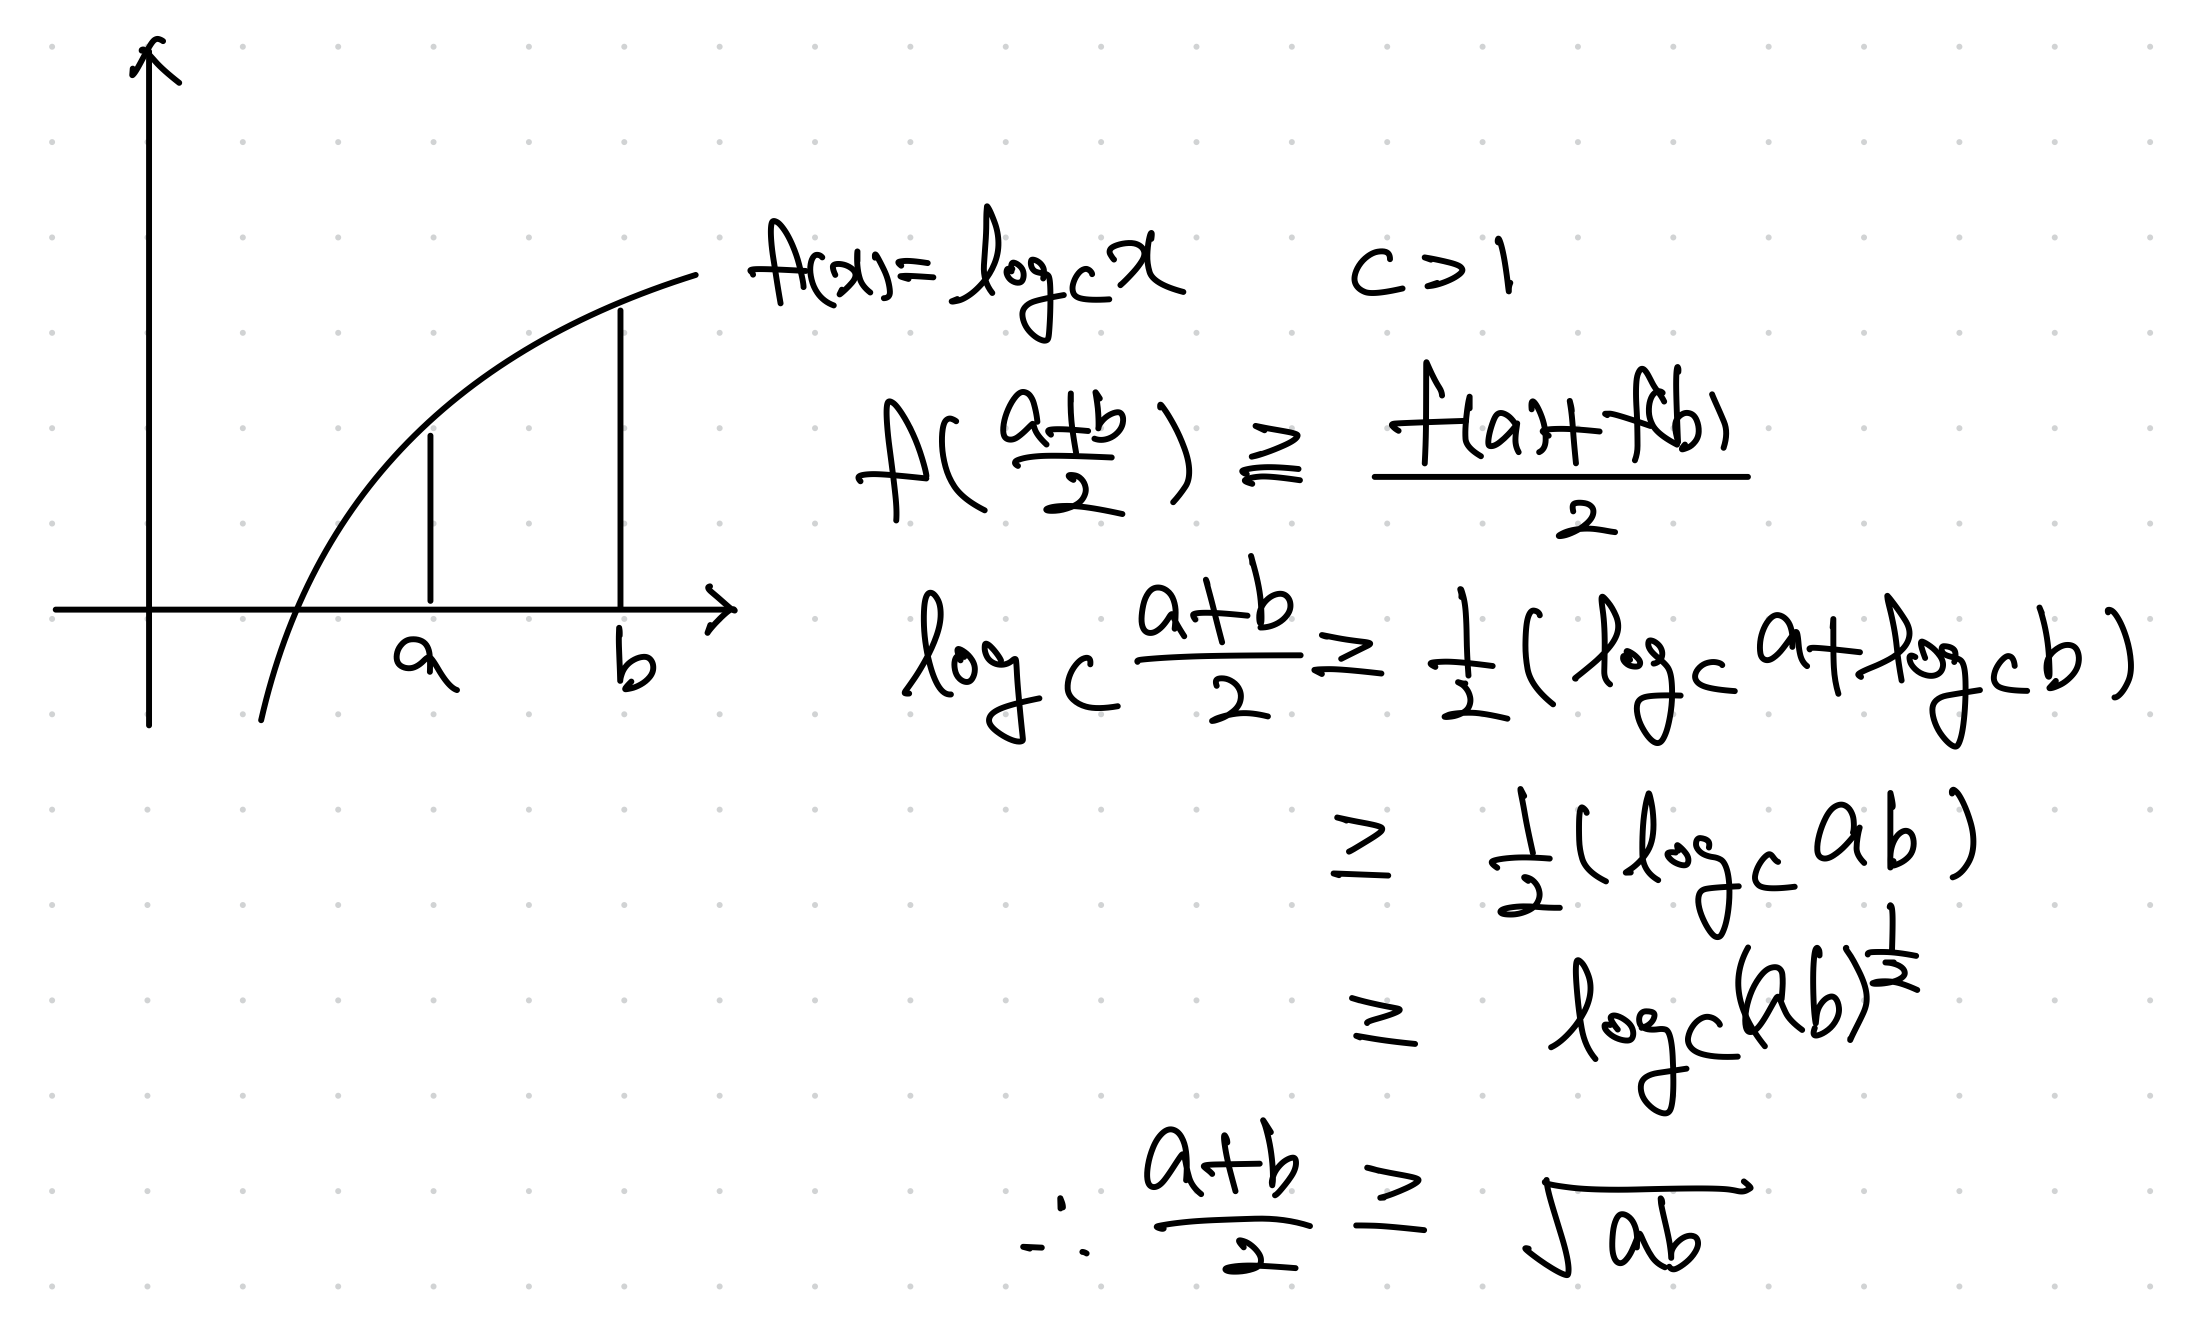 f(x) = log_c x    c > 1
f((a+b)/2) ≧ (f(a)+f(b))/2
log_c (a+b)/2 ≥ 1/2 (log_c a + log_c b)
≥ 1/2 (log_c ab)
≥ log_c (ab)^(1/2)
∴ (a+b)/2 ≥ √ab
a    b